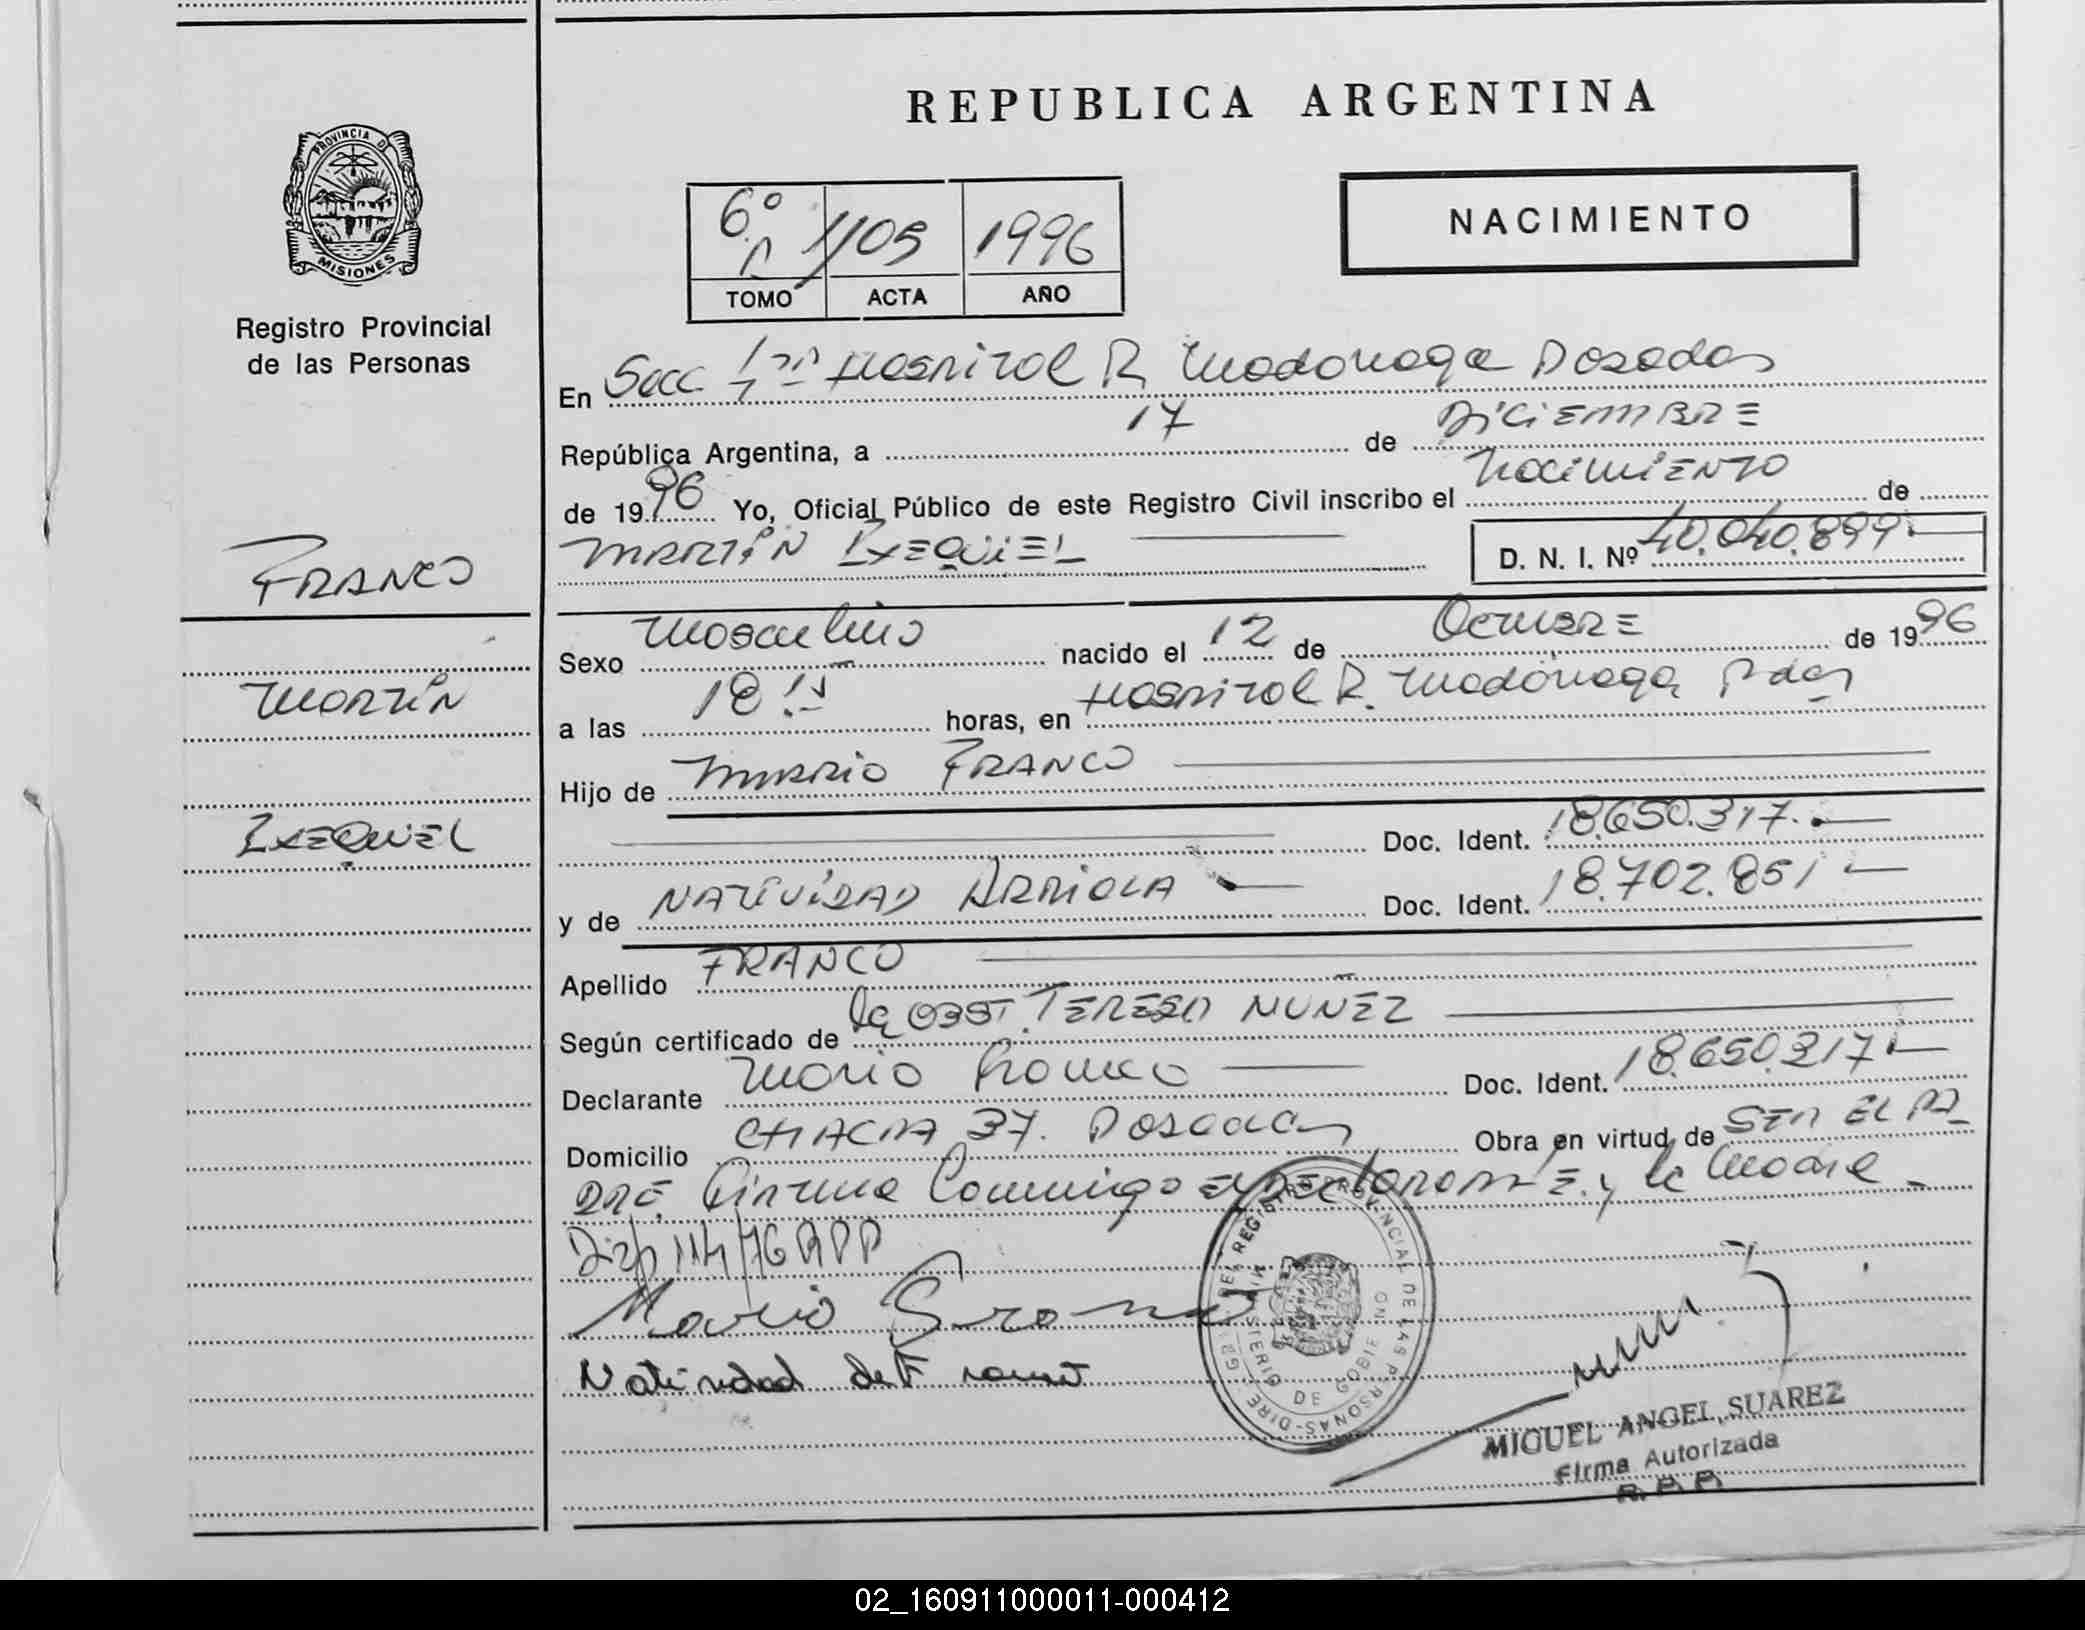 REPUBLICA ARGENTINA
PROVINCIA DE
MISIONES
Registro Provincial
de las Personas
NACIMIENTO
6º 1105 1996
TOMO ACTA AÑO
En Secc 1ra Hospital R Madariaga Posadas
República Argentina, a 17 de DiCiEMBRE
de 1996 Yo, Oficial Público de este Registro Civil inscribo el NaciMiENTO de
MARTíN EXEQUiEL D. N. I. Nº 40.040.899
FRANCO
Sexo Masculino nacido el 12 de OCTUBRE de 1996
Martín
a las 18 horas, en Hospital R. Madariaga Pdas
Hijo de MARIO FRANCO
EXEQUiEL
Doc. Ident. 18.650.317.
y de NATiViDAD ARRIOLA Doc. Ident. 18.702.851
Apellido FRANCO
Según certificado de la OBST. TERESA NUÑEZ
Declarante Mario Franco Doc. Ident. 18.650.317
Domicilio CHACRA 37. Posadas Obra en virtud de SER EL PA
DRE. Firma Conmigo el declarante y la Madre
Disp 114/76 RPP
Mario Franco
Natividad de Franco
REGISTRO PROVINCIAL DE LAS PERSONAS
MINISTERIO DE GOBIERNO
MIGUEL ANGEL SUAREZ
Firma Autorizada
R. P. P.
02_160911000011-000412